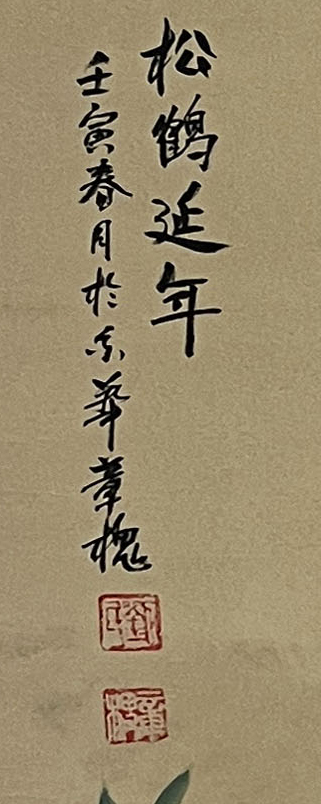 松鶴延年
壬寅春月於京華 槐